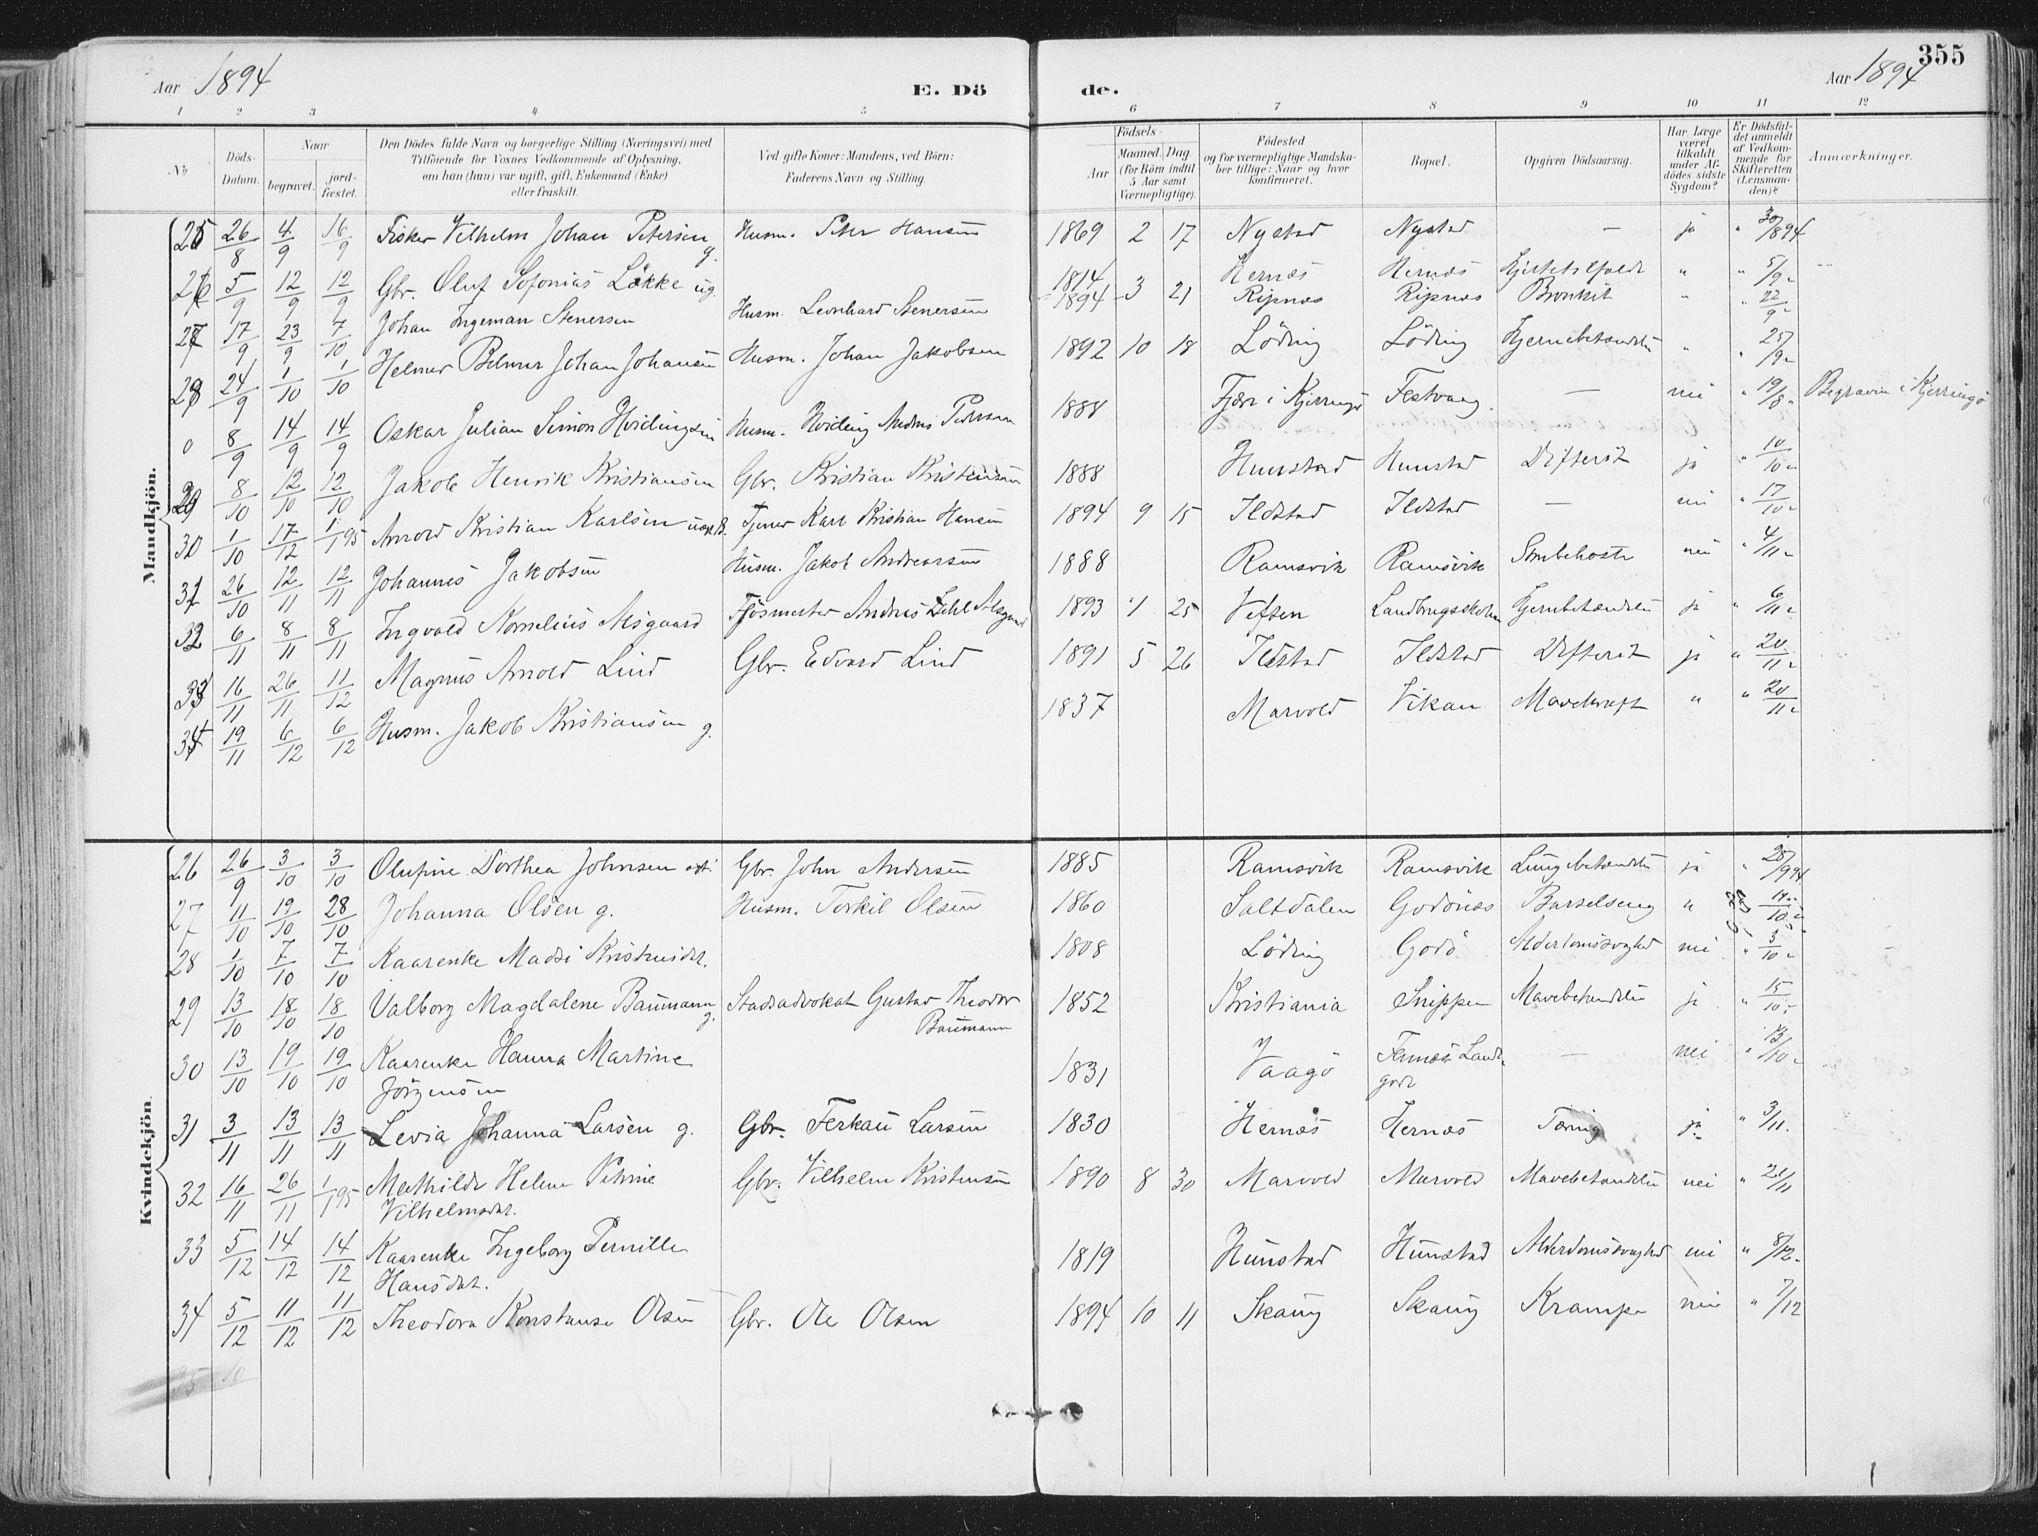 355
Aar 1894 E. Dö de. Aar 1894
1 2 3 4 5 6 7 8 9 10 11 12
No
Döds-Datum.
Naar begravet. jordfæstet.
Den Dödes fulde Navn og borgerlige Stilling (Næringsvei) med Tilföiende for Voxnes Vedkommende af Oplysning, om han (hun) var ugift, gift, Enkemand (Enke) eller fraskilt.
Ved gifte Koner: Mandens, ved Börn: Faderens Navn og Stilling.
Födsels- Aar Maaned. Dag (for Börn indtil 5 Aar samt Værnepligtige).
Födested og for værnepligtige Mandskaber tillige: Naar og hvor konfirmeret.
Bopæl.
Opgiven Dödsaarsag.
Har Læge været tilkaldt under Afdödes sidste Sygdom?
Er Dödsfaldet anmeldt af Vedkommende for Skifteretten (Lensmanden)?
Anmærkninger.
Mandkjön.
25 26/8 4/9 16/9 Fisker Vilhelm Johan Petersen g. Husm. Peter Hansen 1869 2 17 Nystad Nystad — ja " 30/8 94
26 5/9 12/9 12/9 Gbr. Oluf Sofonias Løkke ug. 1814 Hernæs Hernæs " " 5/9
27 17/9 23/9 7/10 Johan Ingeman Stenersen Husm. Leonhard Stenersen 1894 3 21 Ripnæs Ripnæs Bronkit " " 22/9
28 24/9 1/10 1/10 Helmer Johan Johansen Husm. Johan Jakobsen 1892 10 18 Löding Löding Hjernebetændelse " " 25/9
0 8/9 14/9 14/9 Oskar Julian Simon Hvidingsen Husm. Hviding Andreas Pedersen 1888 Fjære i Kjerringö Festvaag — nei " 19/8 Begraven i Kjerringö
29 8/10 12/10 12/10 Jakob Henrik Kristiansen Gbr. Kristian Kristensen 1888 Hunstad Hunstad Difterit ja " 10/10
30 1/10 17/12 1/1 95 Arnold Kristian Karlsen Tjener Karl Kristian Hansen 1894 9 15 Ildstad Ildstad — nei " 17/10
31 26/10 12/11 12/11 Johannes Jakobsen Husm. Jakob Andreassen 1888 Ramsvik Ramsvik nei " 4/11
32 6/11 8/11 8/11 Ingvald Kornelius Alsgaard Fjösmester Andreas Dahl Alsgaard 1893 1 25 Vefsen Landbrugsskolen Hjernebetændelse ja " 6/11
33 16/11 26/11 11/12 Magnus Arnold Lind Gbr. Edvard Lind 1891 5 26 Ildstad Ildstad Difterit ja " 20/11
34 19/11 6/12 6/12 Husm. Jakob Kristiansen g. 1837 Marvold Vikan Mavekræft " " 20/11
Kvindekjön.
26 26/9 3/10 3/10 Olufine Dorthea Johnsen Gbr. John Andersen 1885 Ramsvik Ramsvik Lungebetændelse ja " 28/9 94
27 11/10 19/10 28/10 Johanna Olsen g. Husm. Torkil Olsen 1860 Saltdalen Godönæs Barselseng " 11/10
28 1/10 7/10 7/10 Kaarenke Madsi Kristensdat. 1808 Löding Godö Alderdomssvaghed nei " 3/10
29 13/10 18/10 18/10 Valborg Magdalene Baumann g. Stadsadvokat Gustav Theodor
Baumann 1852 Kristiania Snippen Mavebetændelse ja " 15/10
30 13/10 19/10 19/10 Kaarenke Hanna Martine
Jörgensen 1831 Vaagö Fennæs Landegode — nei " 13/10
31 3/11 13/11 13/11 Levia Johanna Larsen g. Gbr. Ferkau Larsen 1830 Hernæs Hernæs Tæring ja " 3/11
32 16/11 26/11 1/1 95 Mathilde Helene Petrine
Vilhelmsdat. Gbr. Vilhelm Kristensen 1890 8 30 Marvold Marvold Mavebetændelse nei " 21/11
33 5/12 14/12 14/12 Kaarenke Ingeborg Pernille
Hansdat. 1819 Hunstad Hunstad Alderdomssvaghed nei " 8/12
34 5/12 11/12 11/12 Theodora Konstanse Olsen Gbr. Ole Olsen 1894 10 11 Skaug Skaug Krampe nei " 7/12